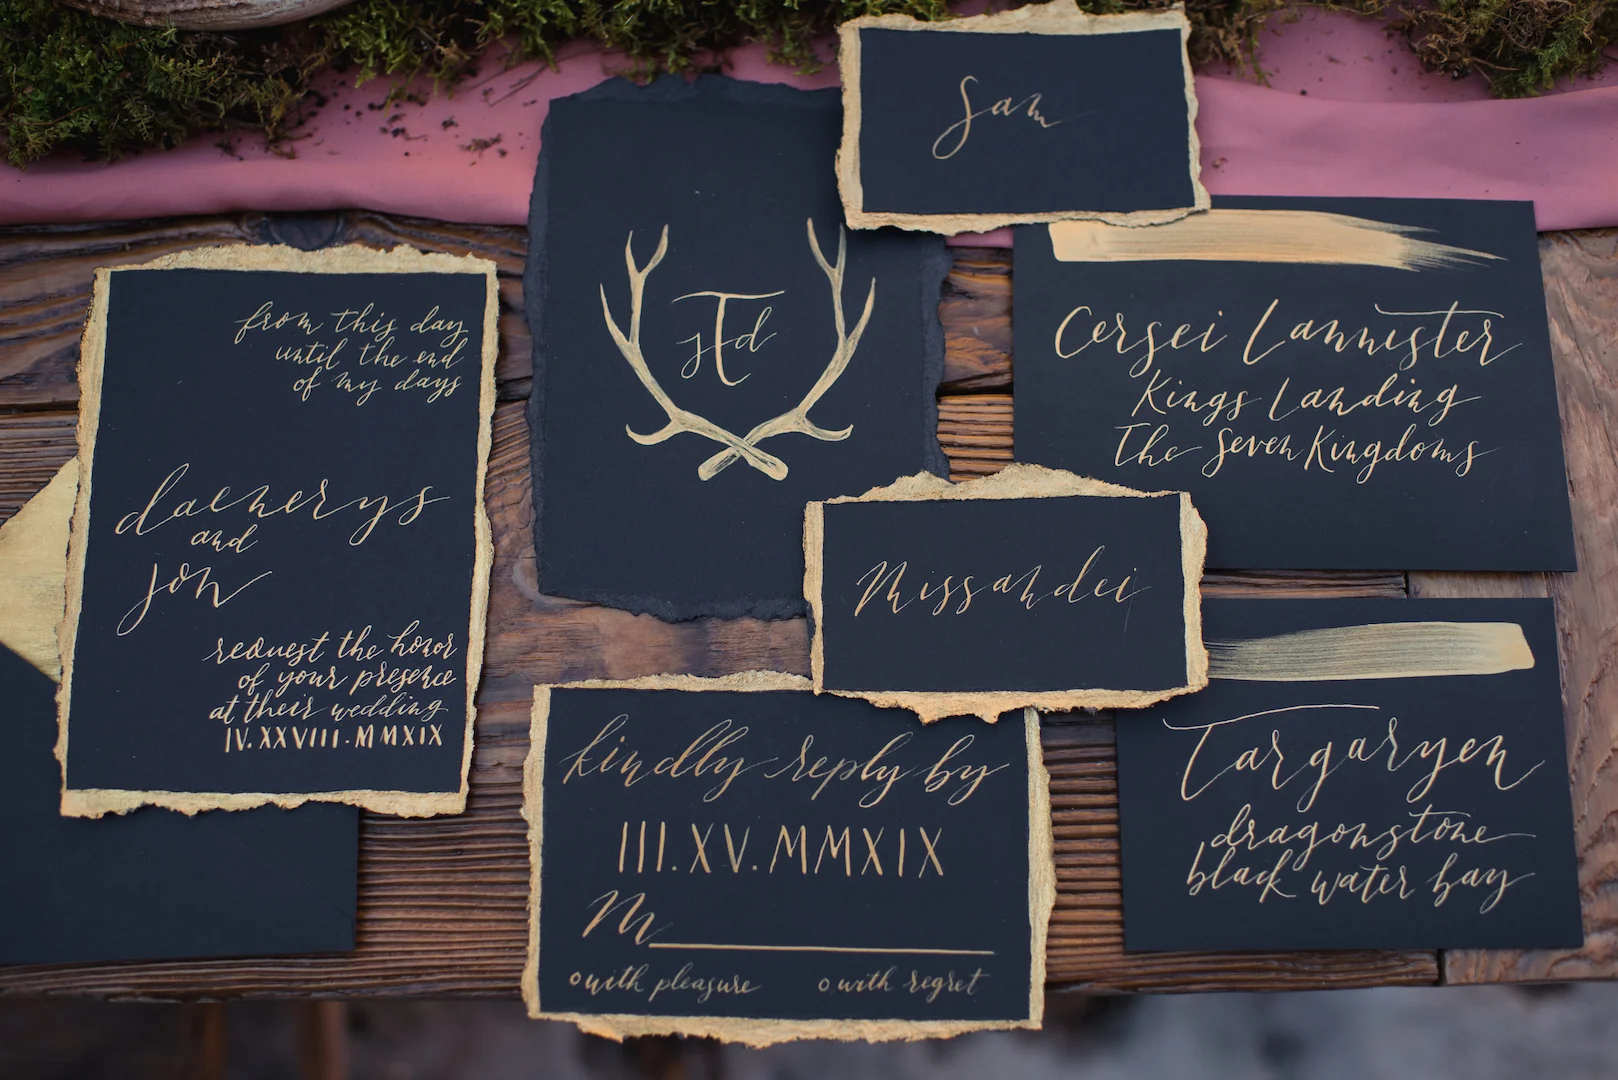 from this day
until the end
of my days
daenerys
and
jon
request the honor
of your presence
at their wedding
IV.XXVIII.MMXIX
jTd
Sam
Cersei Lannister
Kings Landing
The Seven Kingdoms
Missandei
kindly reply by
III.XV.MMXIX
M
with pleasure
with regret
Targaryen
dragonstone
black water bay